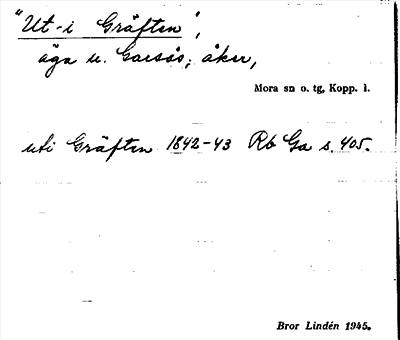 "Ut-i Gräften",
äga u. Garsås; åker,
Mora sn o. tg, Kopp. l.
uti Gräften 1842-43 Rb Ga s. 405.
Bror Lindén 1945.